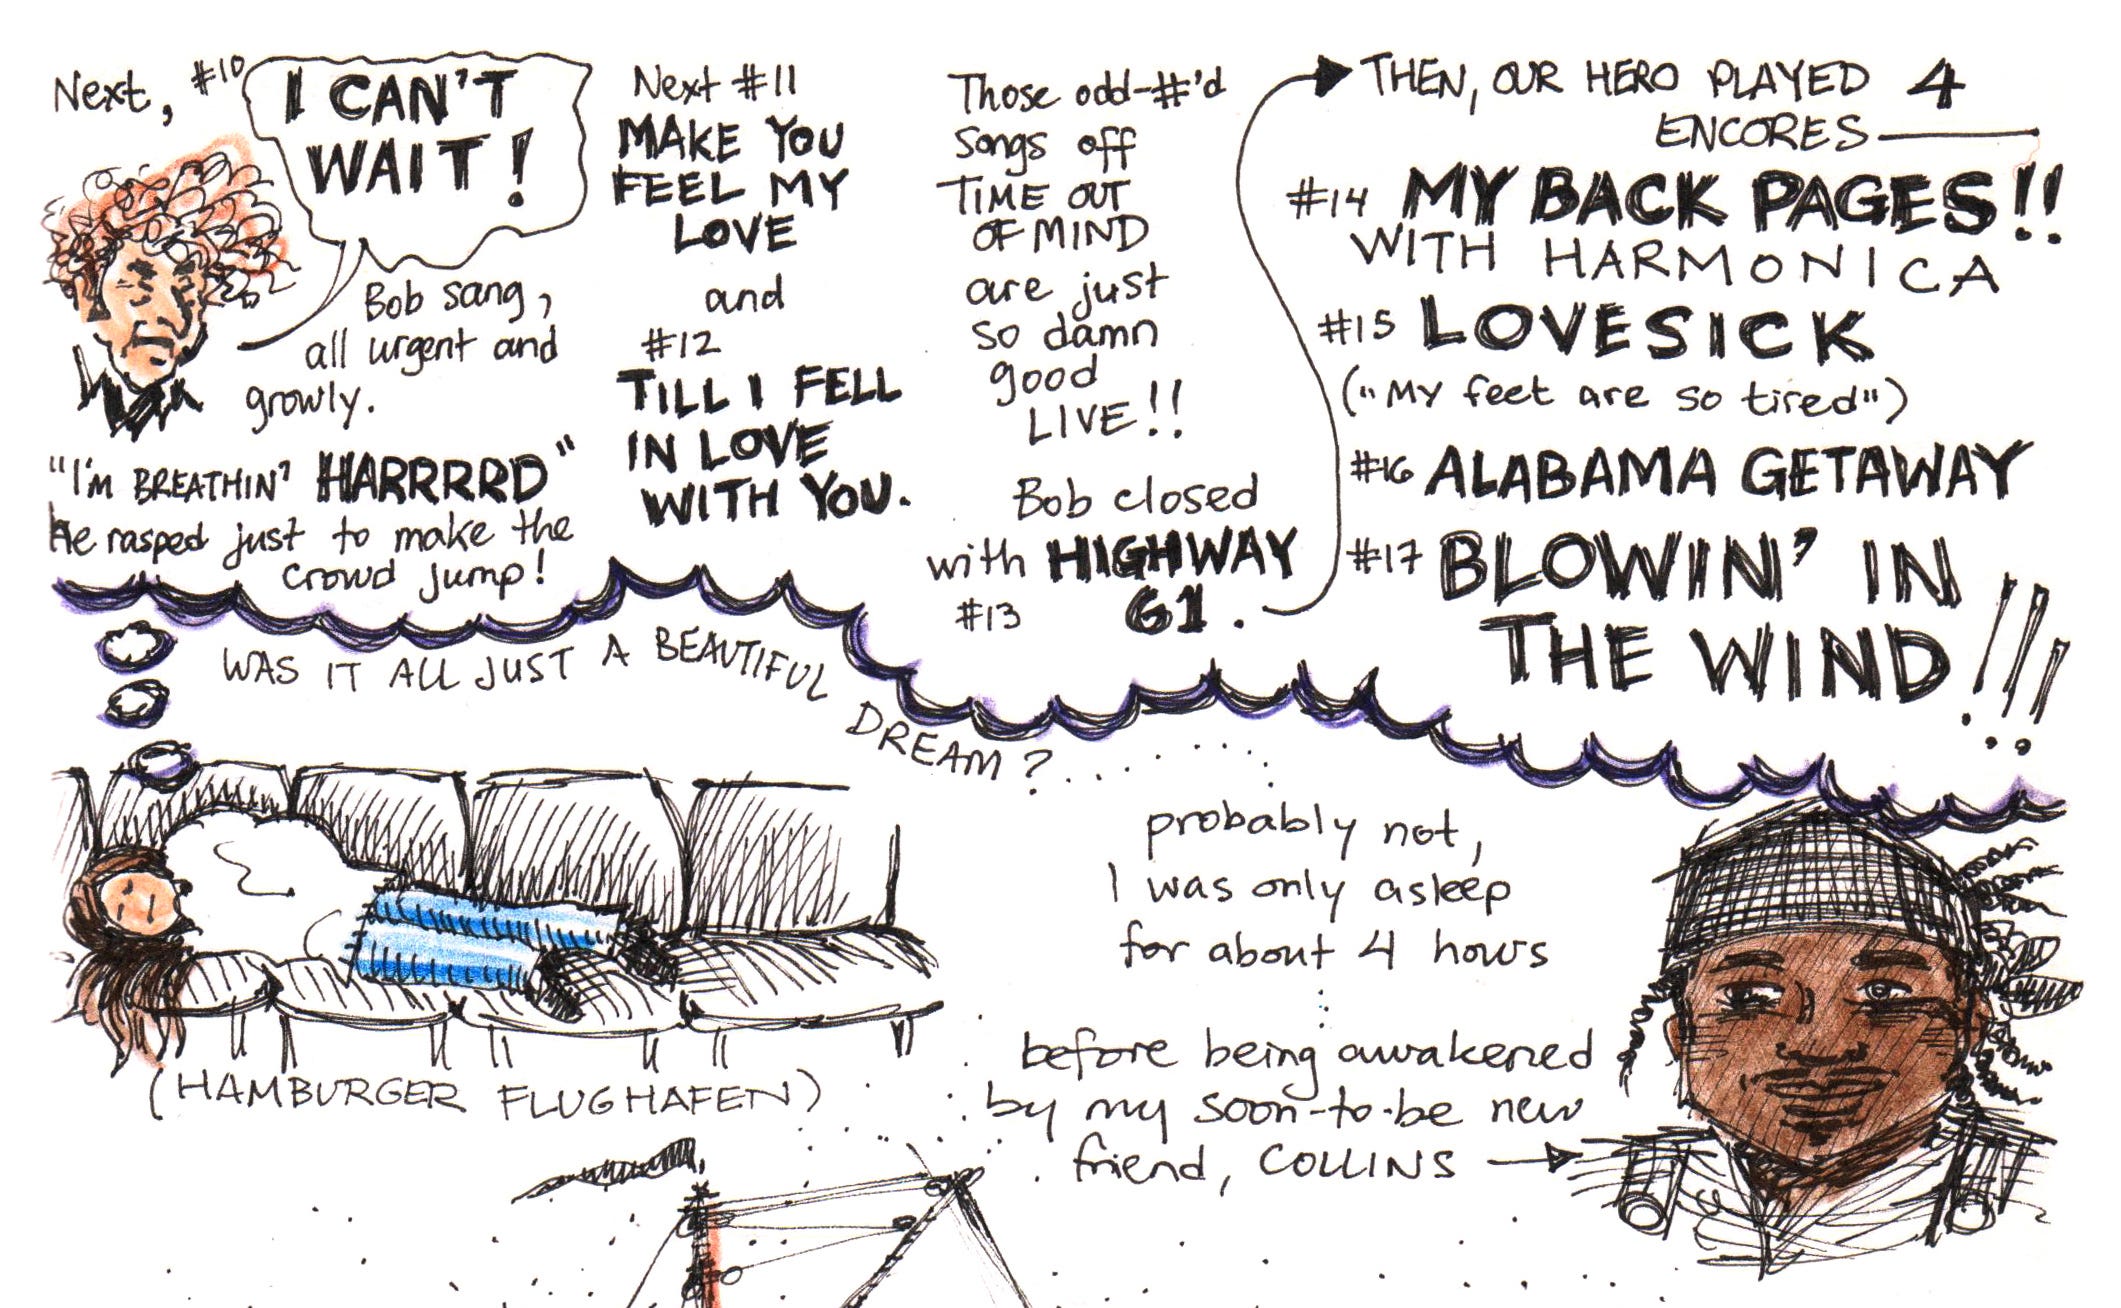 Next, #10
I CAN'T
WAIT!
Bob sang,
all urgent and
growly.
"I'M BREATHIN' HARRRRD"
He rasped just to make the
crowd jump!
Next #11
MAKE YOU
FEEL MY
LOVE
and
#12
TILL I FELL
IN LOVE
WITH YOU.
Those odd-#'d
songs off
TIME OUT
OF MIND
are just
so damn
good
LIVE!!
Bob closed
with HIGHWAY
#13 61.
THEN, OUR HERO PLAYED 4
ENCORES
#14 MY BACK PAGES!!
WITH HARMONICA
#15 LOVESICK
("My feet are so tired")
#16 ALABAMA GETAWAY
#17 BLOWIN' IN
THE WIND!!!
WAS IT ALL JUST A BEAUTIFUL
DREAM?.....
(HAMBURGER FLUGHAFEN)
probably not,
I was only asleep
for about 4 hours
before being awakened
by my soon-to-be new
friend, COLLINS